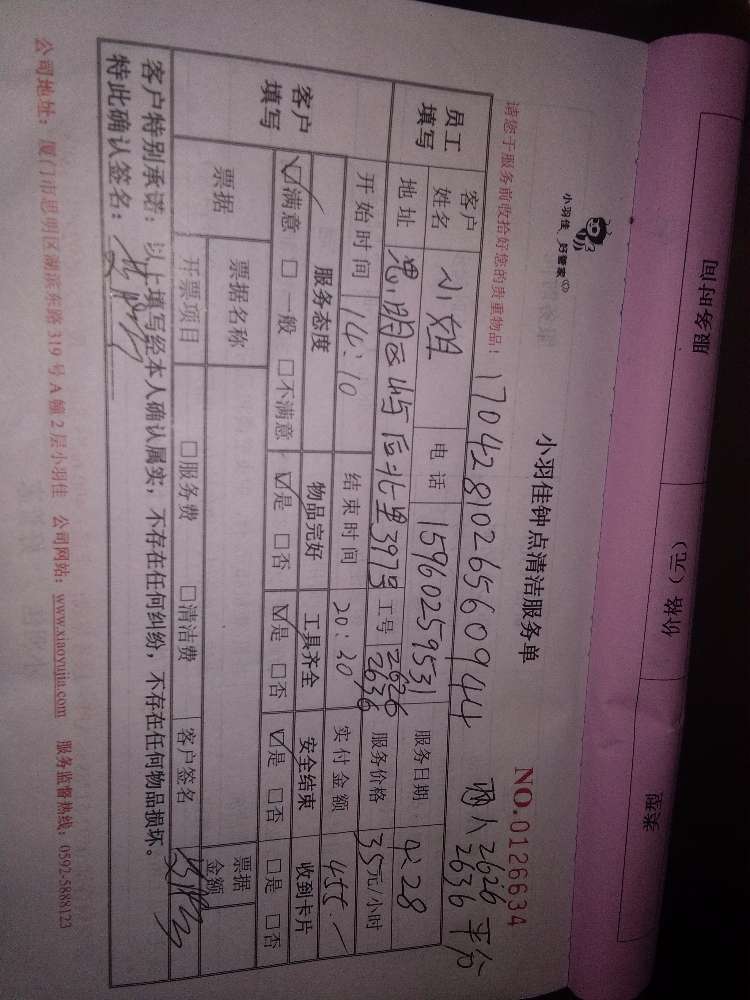 服务时间 价格（元） 类型
小羽佳 好管家
小羽佳钟点清洁服务单
NO.0126634
请您于服务前收拾好您的贵重物品！
17042810265660944 两人2626 2636 平分
员工填写 客户姓名 小姐 电话 15960259531 服务日期 4.28
地址 思明区屿后北里397号 工号 2626 2636 服务价格 35元/小时
开始时间 14:10 结束时间 20:20 实付金额 455.-
客户填写 服务态度 物品完好 工具齐全 安全结束 收到卡片
☑满意 □一般 □不满意 ☑是 □否 ☑是 □否 ☑是 □否 □是 □否
票据 票据名称 □服务费 □清洁费 客户签名 票据金额
开票项目
客户特别承诺：以上填写经本人确认属实；不存在任何纠纷，不存在任何物品损坏。
特此确认签名：
公司地址：厦门市思明区湖滨东路319号A幢2层小羽佳 公司网站：www.xiaoyujia.com 服务监督热线：0592-5888123